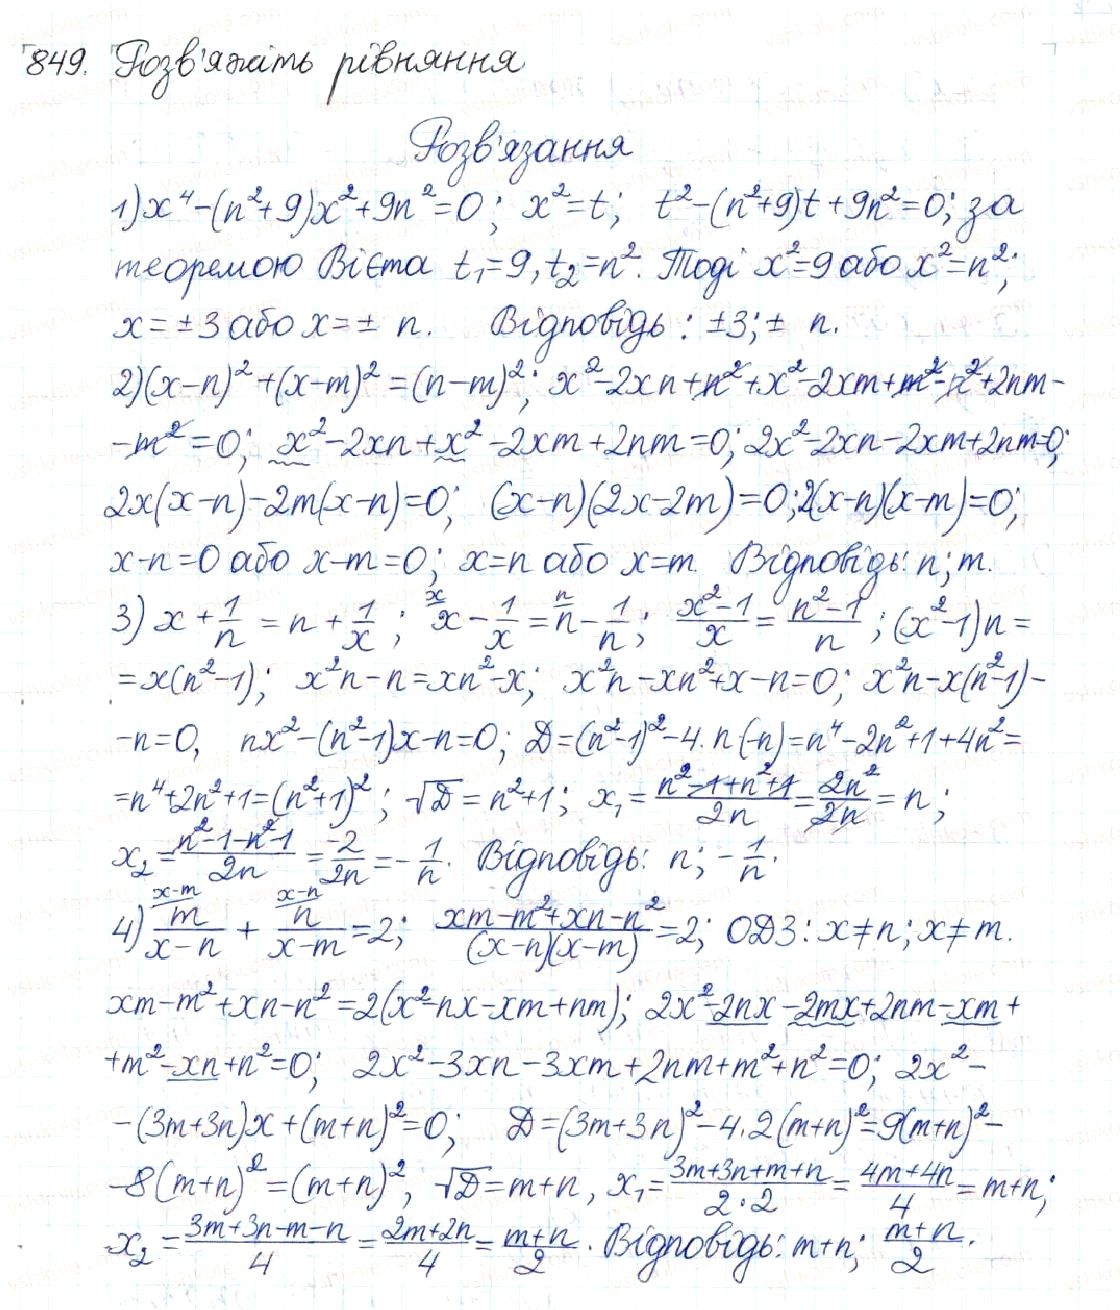 849. Розв'яжіть рівняння
Розв'язання
1) x⁴-(n²+9)x²+9n²=0; x²=t; t²-(n²+9)t+9n²=0; за
теоремою Вієта t₁=9, t₂=n². Тоді x²=9 або x²=n²;
x=±3 або x=± n. Відповідь: ±3; ± n.
2) (x-n)²+(x-m)²=(n-m)²; x²-2xn+n²+x²-2xm+m²-n²+2nm-
-m²=0; x²-2xn+x²-2xm+2nm=0; 2x²-2xn-2xm+2nm=0;
2x(x-n)-2m(x-n)=0; (x-n)(2x-2m)=0; 2(x-n)(x-m)=0;
x-n=0 або x-m=0; x=n або x=m. Відповідь: n; m.
3) x+1/n=n+1/x; x/x-1/x=n/n-1/n; x²-1/x=n²-1/n; (x²-1)n=
=x(n²-1); x²n-n=xn²-x; x²n-xn²+x-n=0; x²n-x(n²-1)-
-n=0, nx²-(n²-1)x-n=0; D=(n²-1)²-4·n(-n)=n⁴-2n²+1+4n²=
=n⁴+2n²+1=(n²+1)²; √D=n²+1; x₁=n²-1+n²+1/2n=2n²/2n=n;
x₂=n²-1-n²-1/2n=-2/2n=-1/n. Відповідь: n; -1/n.
4) x-m/ m/x-n + x-n/ n/x-m=2; xm-m²+xn-n²/(x-n)(x-m)=2; ОДЗ: x≠n; x≠m.
xm-m²+xn-n²=2(x²-nx-xm+nm); 2x²-2nx-2mx+2nm-xm+
+m²-xn+n²=0; 2x²-3xn-3xm+2nm+m²+n²=0; 2x²-
-(3m+3n)x+(m+n)²=0; D=(3m+3n)²-4·2(m+n)²=9(m+n)²-
-8(m+n)²=(m+n)², √D=m+n, x₁=3m+3n+m+n/2·2=4m+4n/4=m+n;
x₂=3m+3n-m-n/4=2m+2n/4=m+n/2. Відповідь: m+n; m+n/2.